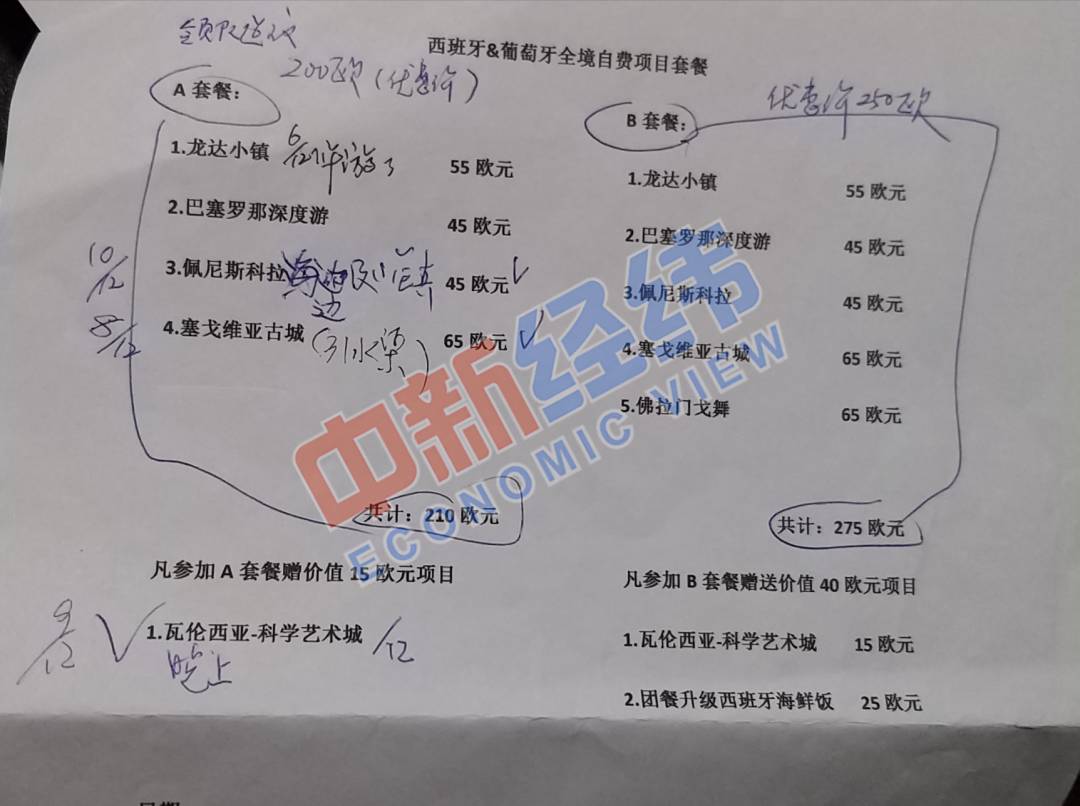 西班牙&葡萄牙全境自费项目套餐
200欧(优惠价)
A 套餐：
1.龙达小镇 55 欧元
2.巴塞罗那深度游 45 欧元
10/12 3.佩尼斯科拉 45 欧元
8/12 4.塞戈维亚古城 (引水渠) 65 欧元
共计：210 欧元
凡参加 A 套餐赠价值 15 欧元项目
9/12 1.瓦伦西亚-科学艺术城 /12
晚上
优惠价250欧
B 套餐：
1.龙达小镇 55 欧元
2.巴塞罗那深度游 45 欧元
3.佩尼斯科拉 45 欧元
4.塞戈维亚古城 65 欧元
5.佛拉门戈舞 65 欧元
共计：275 欧元
凡参加 B 套餐赠送价值 40 欧元项目
1.瓦伦西亚-科学艺术城 15 欧元
2.团餐升级西班牙海鲜饭 25 欧元
中新经纬
ECONOMIC VIEW